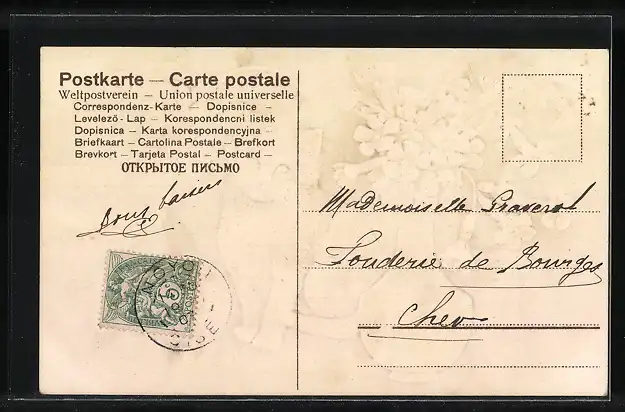 Postkarte — Carte postale
Weltpostverein — Union postale universelle
Correspondenz-Karte — Dopisnice —
Levelező-Lap — Korespondencni listek
Dopisnica — Karta korespondencyjna —
Briefkaart — Cartolina Postale — Brefkort
Brevkort — Tarjeta Postal — Postcard —
ОТКРЫТОЕ ПИСЬМО
Bons baisers
Mademoiselle
Fonderie de Bourges
Cher